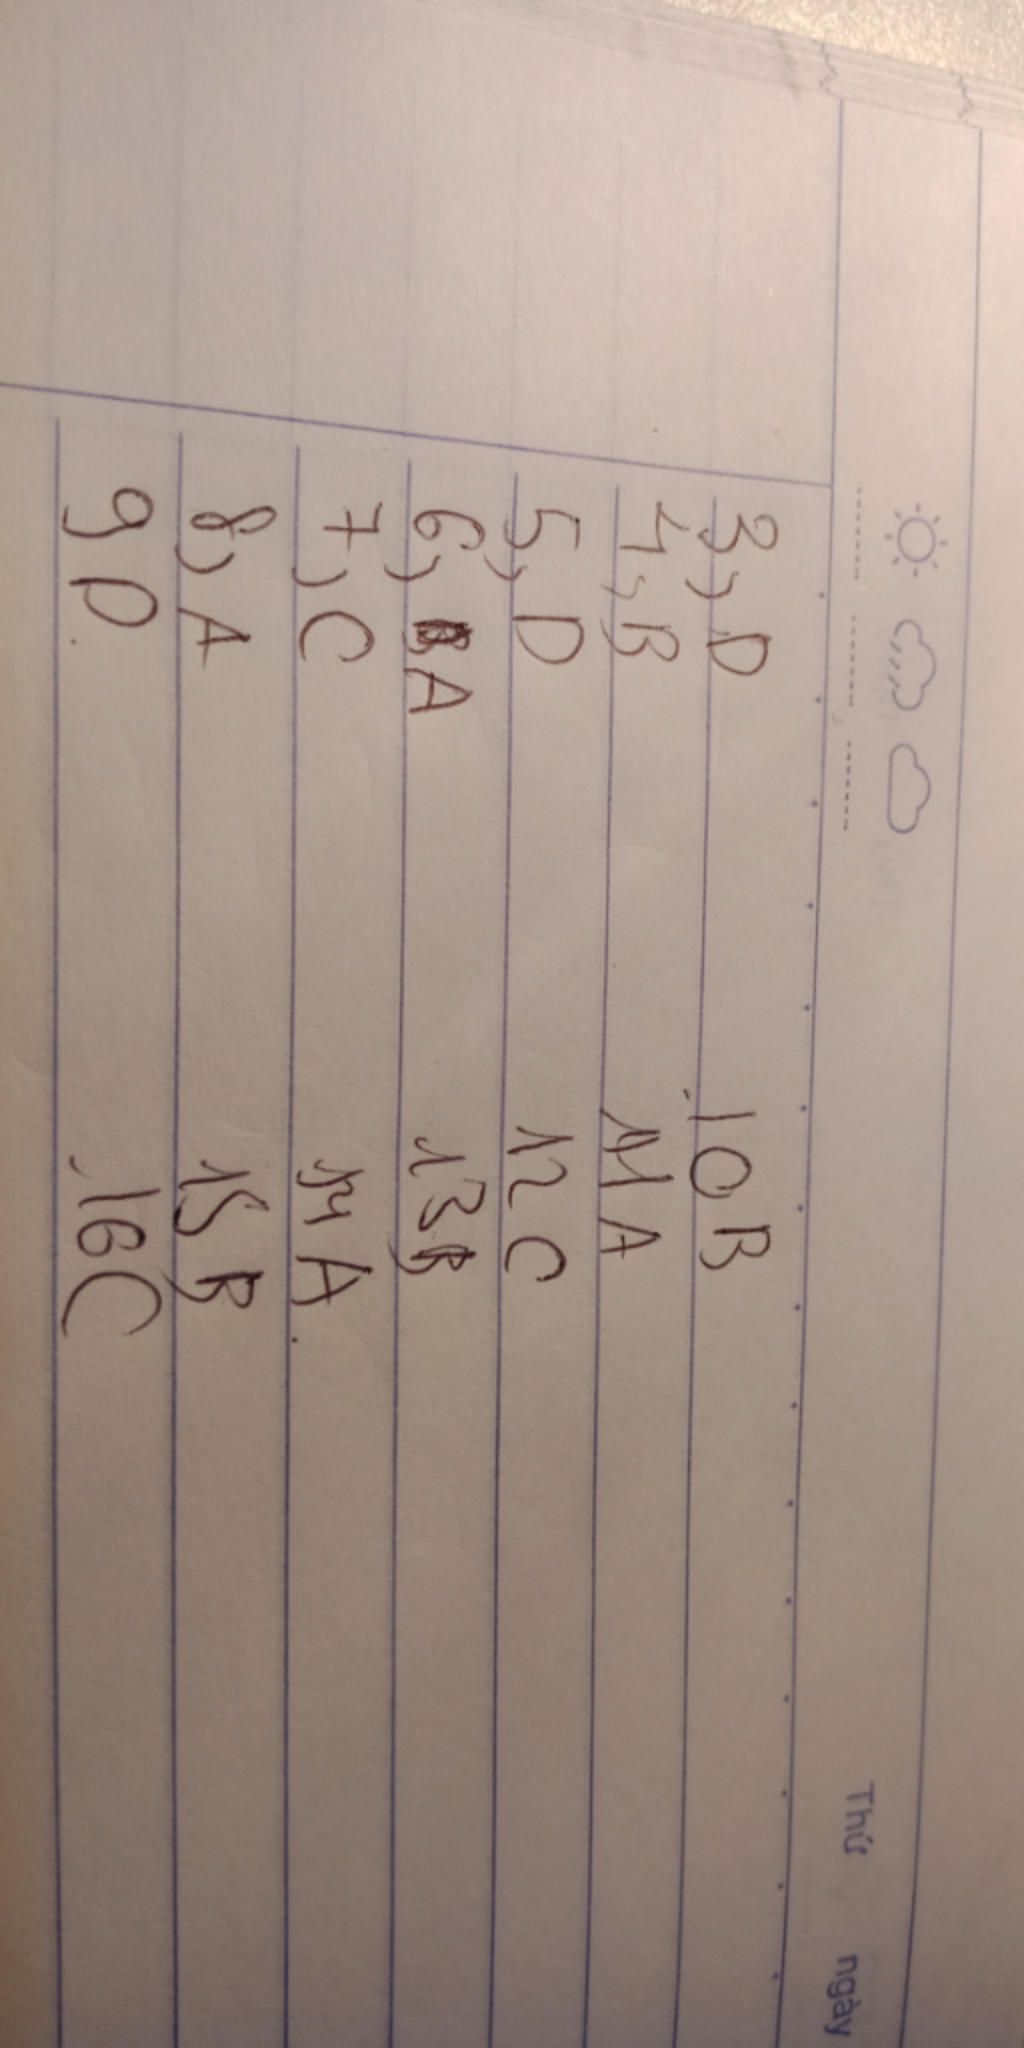 Thứ ngày
3, D 10 B
4, B 11 A
5, D 12 C
6, A 13 B
7, C 14 A
8, A 15 B
9 D 16 C